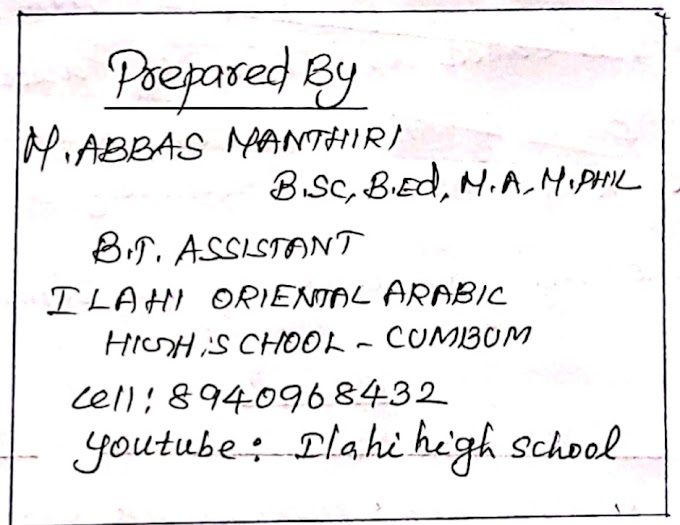 Prepared By
M. ABBAS MANTHIRI
B.SC, B.Ed, M.A, M.PHIL
B.T. ASSISTANT
ILAHI ORIENTAL ARABIC
HIGH SCHOOL - CUMBUM
Cell: 8940968432
Youtube: Ilahi high school